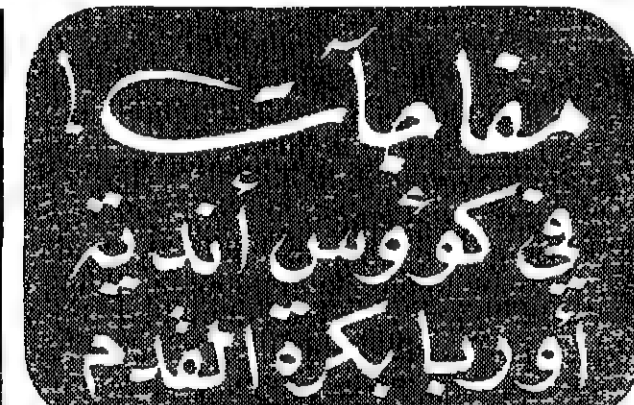 مفاجآت !
في كؤوس أندية
أوربا بكرة القدم